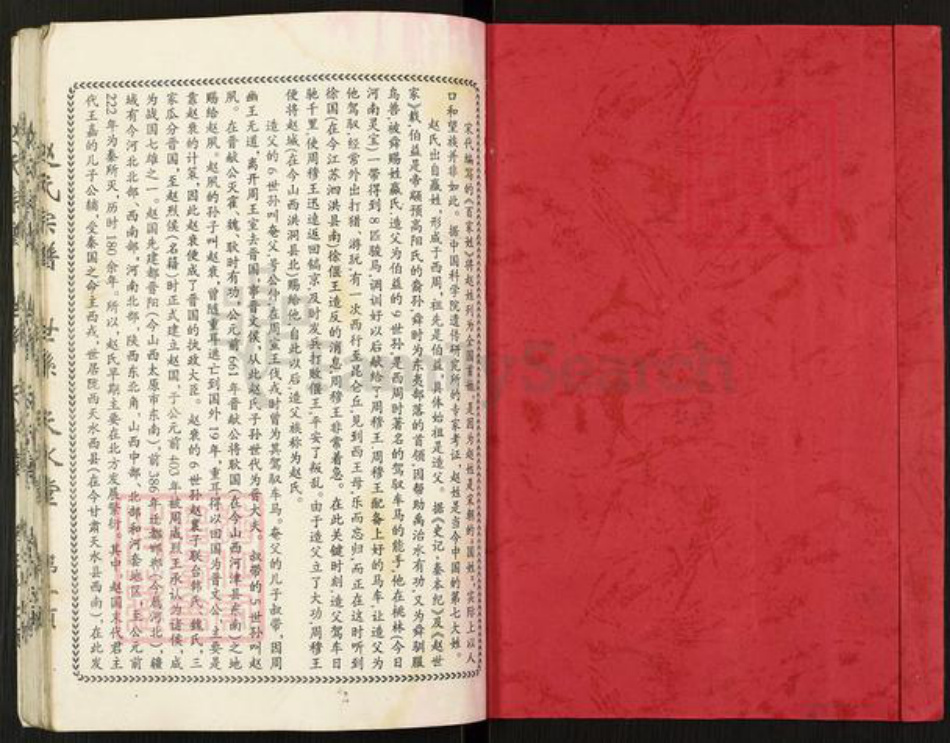 宋代编写的《百家姓》将赵姓列为全国首姓，是因为赵姓是宋朝的“国姓”，实际上以人
口和望族并非如此。据中国科学院遗传研究所的专家考证，赵姓是当今中国的第七大姓。
赵氏出自嬴姓，形成于西周，祖先是伯益，具体始祖是造父。据《史记·秦本纪》及《赵世
家》载，伯益是帝颛顼高阳氏的裔孙，舜时为东夷部落的首领，因帮助禹治水有功，又为舜驯服
鸟兽，被舜赐姓嬴氏；造父为伯益的9世孙，是西周时著名的驾驭车马的能手，他在桃林（今日
河南灵宝）一带得到8匹骏马，调训好以后献给了周穆王，周穆王配备上好的马车，让造父为
他驾驭，经常外出打猎、游玩，有一次西行至昆仑丘，见到西王母，乐而忘归，而正在这时听到
徐国（在今江苏泗洪县南）徐偃王造反的消息，周穆王非常着急。在此关键时刻，造父驾车日
驰千里，使周穆王迅速返回镐京，及时发兵打败偃王，平安了叛乱。由于造父立了大功，周穆王
便将赵城（在今山西洪洞县北）赐给他，自此以后，造父族称为赵氏。
造父的6世孙叫奄父，号公仲，在周宣王伐戎时曾为其驾驭车马。奄父的儿子叔带，因周
幽王无道，离开周王室去晋国，事晋文侯，从此赵氏子孙世代为晋大夫。叔带的5世孙叫赵
夙。在晋献公灭霍、魏、耿时有功，公元前661年晋献公将耿国（在今山西河津县东南）之地
赐给赵夙。赵夙的孙子叫赵衰，曾随重耳逃亡到国外19年，重耳得以回国为晋文公，主要是
靠赵衰的计策，因此赵衰便成了晋国的执政大臣。赵衰的6世孙赵襄子联合韩氏、魏氏，三
家瓜分晋国，至赵烈侯（名籍）时正式建立赵国，于公元前403年被周威烈王承认为诸侯，成
为战国七雄之一。赵国先建都晋阳（今山西太原市东南），前386年迁都邯郸（今属河北），疆
域有今河北北部、西南部，河南北部，陕西东北角，山西中部、北部和河套地区，至公元前
222年为秦所灭，历时180余年。所以，赵氏早期主要在北方发展繁衍。其中，赵国末代君主
代王嘉的儿子公辅，受秦国之命，主西戎，世居陇西天水西县（在今甘肃天水县西南），在此发
赵氏宗谱 世系 天水堂
FamilySearch